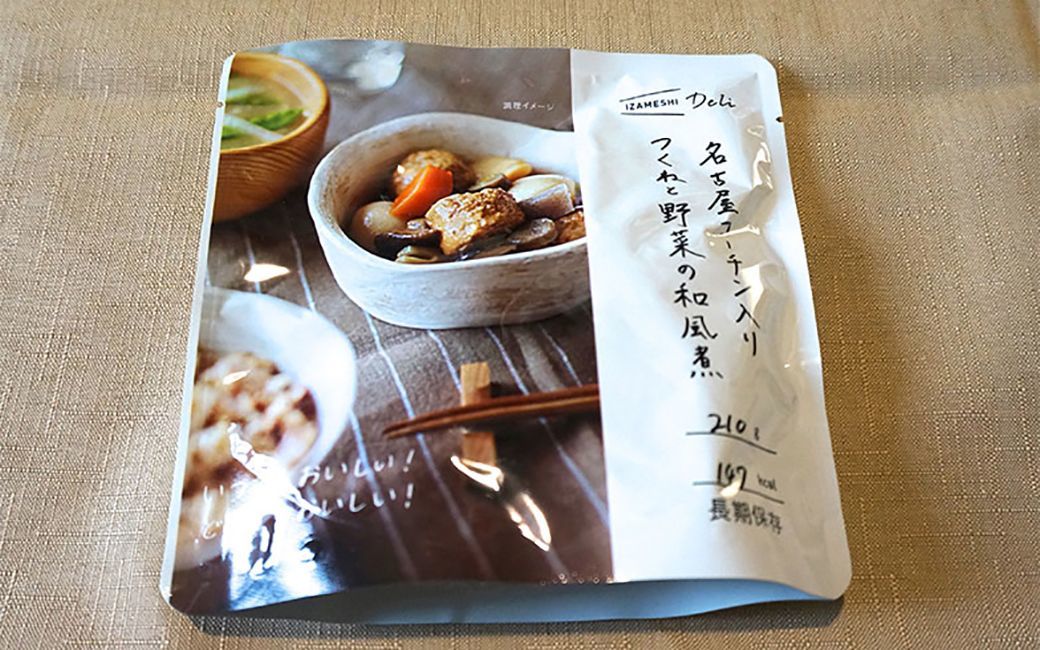 調理イメージ
IZAMESHI Deli
名古屋コーチン入り
つくねと野菜の和風煮
210g
147kcal
長期保存
おいしい!
おいしい!